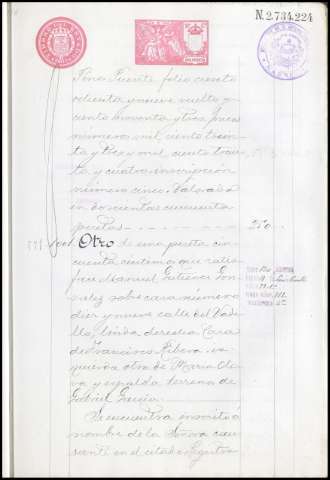 N.2.734.224
Ponce Puente folio ciento
ochenta y nueve vuelto y
ciento noventa y tres fincas
números mil ciento trein
ta y tres y mil ciento trein
ta y cuatro inscripción
número cinco. Valorada
in doscientas cincuenta
pesetas 250
Otro de una peseta cin
cuenta céntimos que satis
face Manuel Gutierrez Gon
zalez sobre casa número
diez y nueve calle del
linda derecha Casa
de Francisco Ribera, iz
quierda otra de Maria
y espalda terreno de
Gabriel García
Se encuentra inscrito á
nombre de la Señora cau
sante en el citado Registro